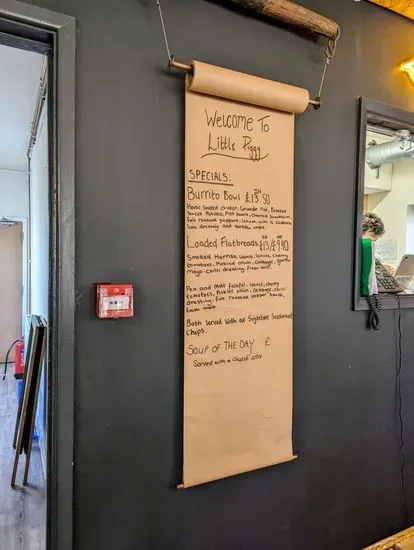 Welcome To
Little Piggy
SPECIALS:
Burrito Bowl £13.50
House smoked chicken, Coriander Rice, Roasted
Sweet Potato, Pinto beans, Charred Sweetcorn,
fire roasted peppers, leaves, with a
lime dressing and tortilla
Loaded Flatbreads £13/£9.90
Smoked Harrisa leaves, cherry
tomatoes, Pickled onion, cabbage,
mayo, chilli dressing, fresh mint.
Pea and mint falafel, leaves, cherry
tomatoes, Pickled onion, Cabbage, chilli
dressing, fire roasted pepper
fresh mint
Both served with our Signature Seasoned
Chips.
SOUP OF THE DAY £
Served with a Cheese